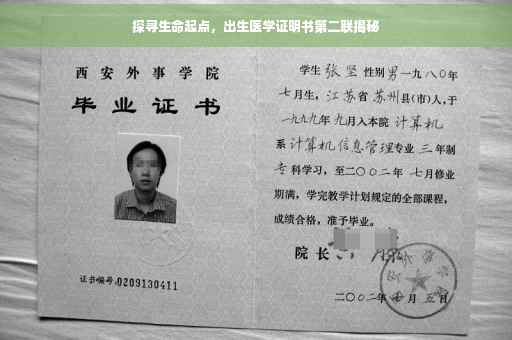 探寻生命起点，出生医学证明书第二联揭秘
西安外事学院
毕业证书
证书编号:0209130411
学生 张坚 性别 男 一九八〇年
七月生，江苏省 苏州县(市)人，于
一九九九年 九月入本院 计算机
系 计算机信息管理专业 三 年制
专 科学习，至二〇〇二年 七月修业
期满，学完教学计划规定的全部课程，
成绩合格，准予毕业。
院长
二〇〇二年 月 五日